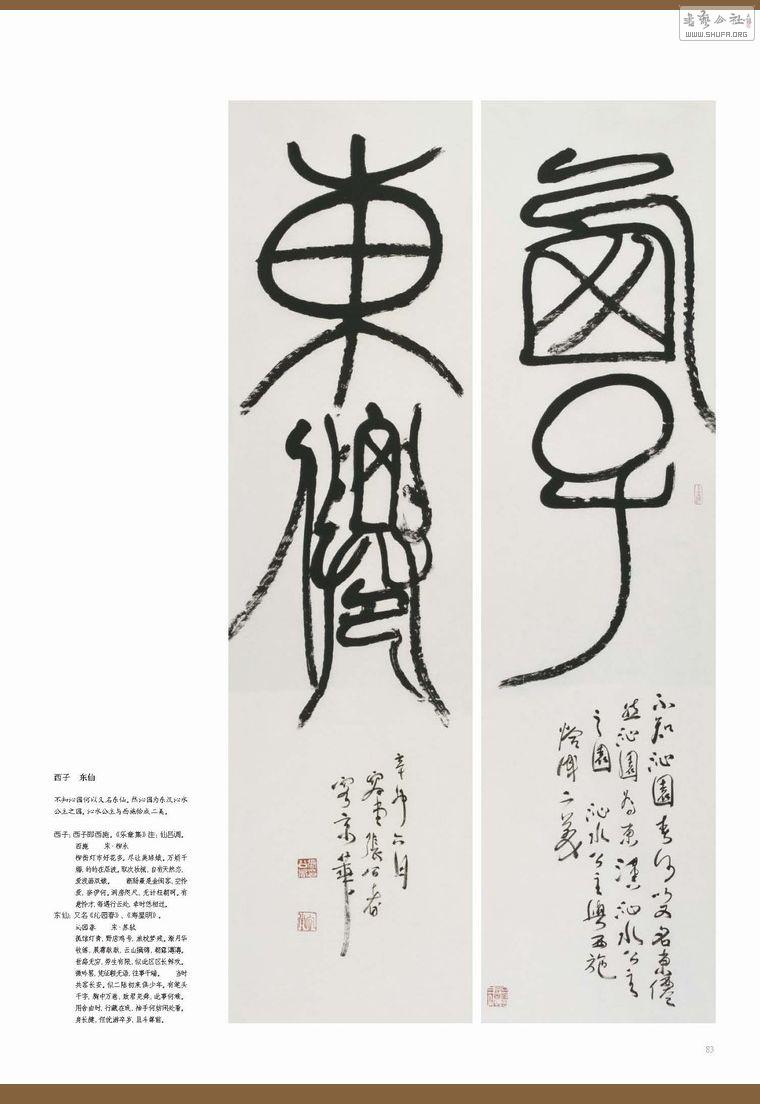 书艺公社
WWW.SHUFA.ORG
西子
不知沁园春何以又名东仙
然沁园为东汉沁水公主
之园 沁水公主与西施
恰成二美
東僊
辛卯六月
容堂張公者
寫京華
西子　东仙
不知沁园何以又名东仙。然沁园为东汉沁水
公主之园，沁水公主与西施恰成二美。
西子：西子即西施。《乐章集》注：仙吕调。
西施　宋·柳永
柳街灯市好花多。尽让美琼娥。万娇千
媚，的的在层波。取次梳妆，自有天然态，
爱浅画双蛾。　断肠最是金闺客，空怜
爱，奈伊何。洞房咫尺，无计枉朝珂。有
意怜才，每遇行云处，幸时恁相过。
东仙：又名《沁园春》、《寿星明》。
沁园春　宋·苏轼
孤馆灯青，野店鸡号，旅枕梦残。渐月华
收练，晨霜耿耿，云山摛锦，朝露漙漙。
世路无穷，劳生有限，似此区区长鲜欢。
微吟罢，凭征鞍无语，往事千端。　当时
共客长安。似二陆初来俱少年。有笔头
千字，胸中万卷，致君尧舜，此事何难。
用舍由时，行藏在我，袖手何妨闲处看。
身长健，但优游卒岁，且斗尊前。
83